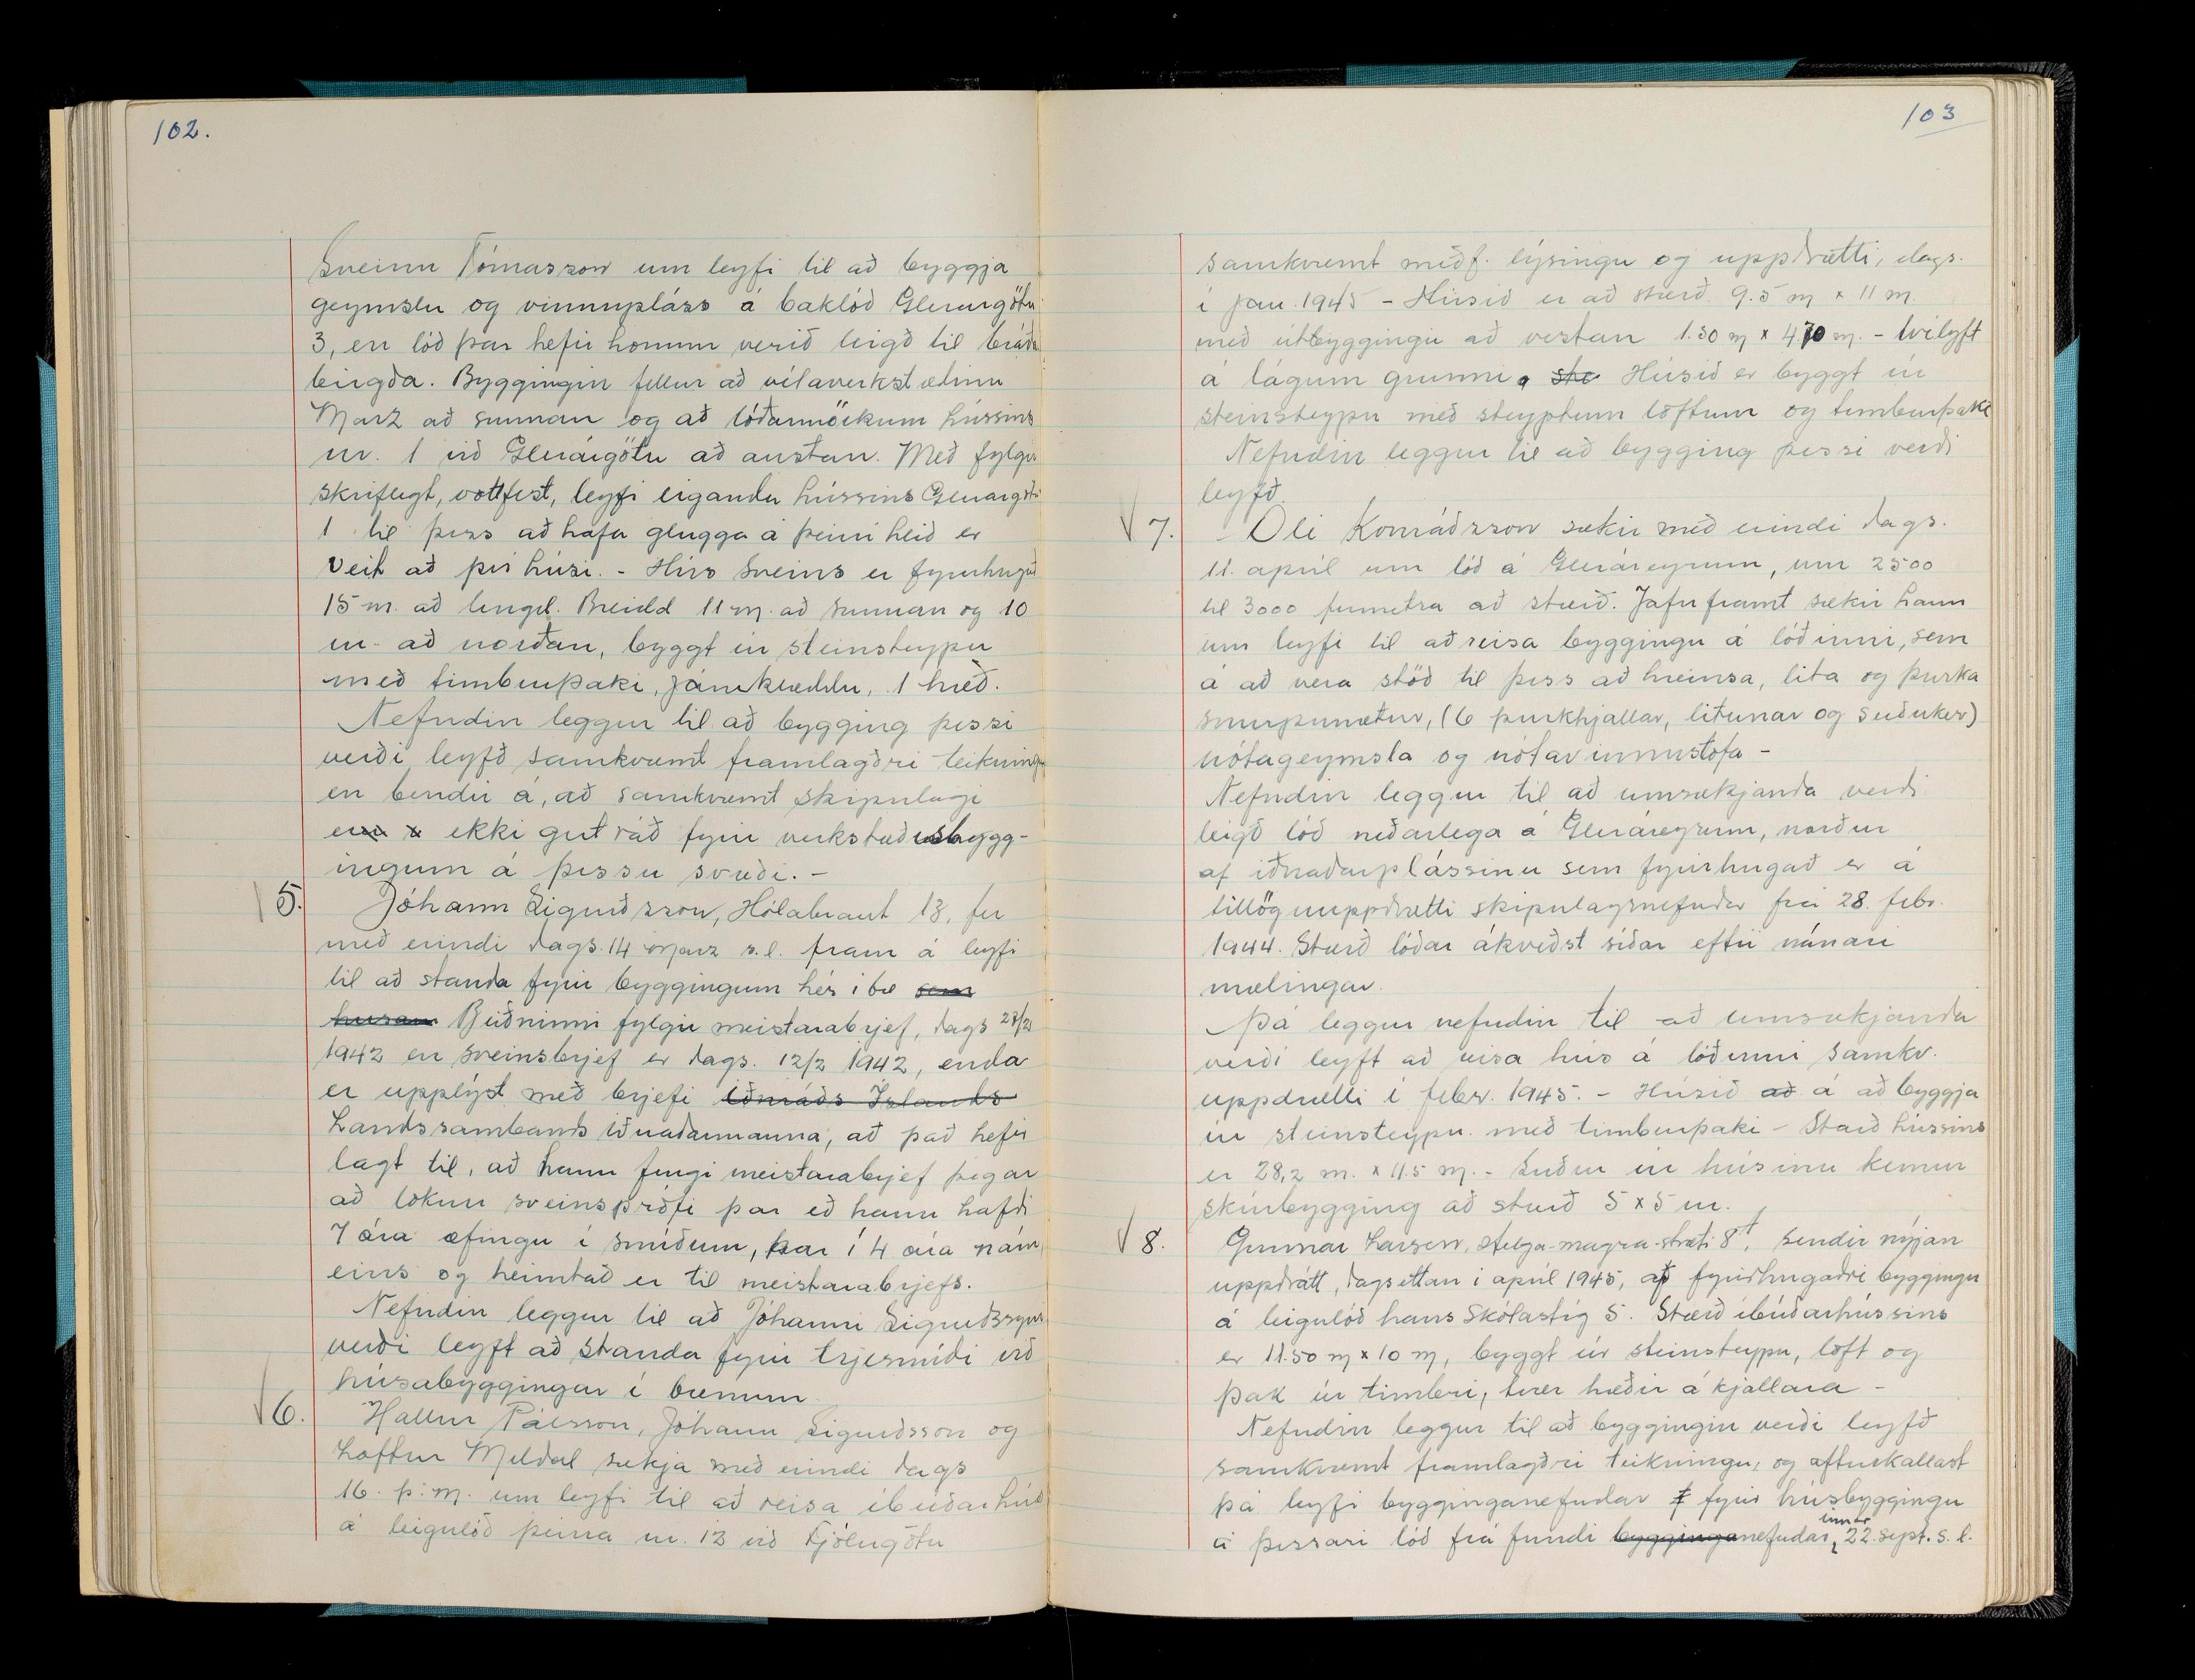 102.
Sveinn Tómasson um leyfi til að byggja
geymslu og vinnupláss á baklóð Glerárgötu
3, en lóð þar hefir honum verið leigð til bráða
birgða. Byggingin fellur að vélaverkstæðinu
Marz að sunnan og að lóðamörkum hússins
nr. 1 við Glerárgötu að austan. Með fylgir
skriflegt, vottfest, leyfi eiganda hússins Glerárgötu
1 til þess að hafa glugga á þeirri hlið er
veit að því húsi. - Hús Sveins er fyrirhugað
15 m. að lengd. Breidd 11 m. að sunnan og 10
m. að norðan, byggt úr steinsteypu
með timburþaki, járnklæddu, 1 hæð.
Nefndin leggur til að bygging þessi
verði leyfð samkvæmt framlagðri teikningu
en bendir á, að samkvæmt skipulagi
er ekki gert ráð fyrir verkstæðisbygg-
ingum á þessu svæði. -
5. Jóhann Sigurðsson, Hólabraut 13, fer
með erindi dags. 14 marz s.l. fram á leyfi
til að standa fyrir byggingum hér í bæ sem
Beiðninni fylgir meistarabrjef, dags 27/2
1942 en sveinsbrjef er dags. 12/2 1942, enda
er upplýst með brjefi Iðnráðs Íslands
Landssambands iðnaðarmanna, að það hefir
lagt til, að hann fengi meistarabrjef þegar
að loknu sveinsprófi þar eð hann hafði
7 ára æfingu í smíðum, þar í 4 ára nám,
eins og heimtað er til meistarabrjefs.
Nefndin leggur til að Jóhanni Sigurðssyni
verði leyft að standa fyrir trjesmíði við
húsabyggingar í bænum.
6. Hallur Pálsson, Jóhann Sigurðsson og
Loftur Meldal sækja með erindi dags
16. þ.m. um leyfi til að reisa íbúðarhús
á leigulóð þeirra nr. 13 við Fjólugötu
103
samkvæmt meðf. lýsingu og uppdrætti, dags.
í jan. 1945 - Húsið er að stærð 9.5 m x 11 m.
með útbyggingu að vestan 1.30 m x 470 m. - tvílyft
á lágum grunni, ste Húsið er byggt úr
steinsteypu með steyptum loftum og timburþaki
Nefndin leggur til að bygging þessi verði
leyfð.
7. Óli Konráðsson sækir með erindi dags.
11. apríl um lóð á Gleráreyrum, um 2500
til 3000 fermetra að stærð. Jafnframt sækir hann
um leyfi til að reisa byggingu á lóðinni, sem
á að vera stöð til þess að hreinsa, lita og þurka
snurpunætur, (6 þurkhjallar, litunar og suðuker)
nótageymsla og nótavinnustofa -
Nefndin leggur til að umsækjanda verði
leigð lóð neðarlega á Gleráreyrum, norður
af iðnaðarplássinu sem fyrirhugað er á
tillöguuppdrætti skipulagsnefndar frá 28. febr.
1944. Stærð lóðar ákveðst síðar eftir nánari
mælingar.
Þá leggur nefndin til að umsækjanda
verði leyft að reisa hús á lóðinni samkv.
uppdrætti í febr. 1945. - Húsið að á að byggja
úr steinsteypu með timburþaki - Stærð hússins
er 28,2 m. x 11.5 m. - Suður úr húsinu kemur
skúrbygging að stærð 5 x 5 m.
8. Gunnar Larsen, Helga-magra-stræti 8, sendir nýjan
uppdrátt, dagsettan í apríl 1945, af fyrirhugaðri byggingu
á leigulóð hans Skólastíg 5. Stærð íbúðarhússins
er 11.50 m x 10 m, byggt úr steinsteypu, loft og
þak úr timbri, tvær hæðir á kjallara -
Nefndin leggur til að byggingin verði leyfð
samkvæmt framlagðri teikningu, og afturkallast
þá leyfi bygginganefndar f fyrir húsbyggingu
á þessari lóð frá fundi bygginganefndarinnar 22. sept. s.l.